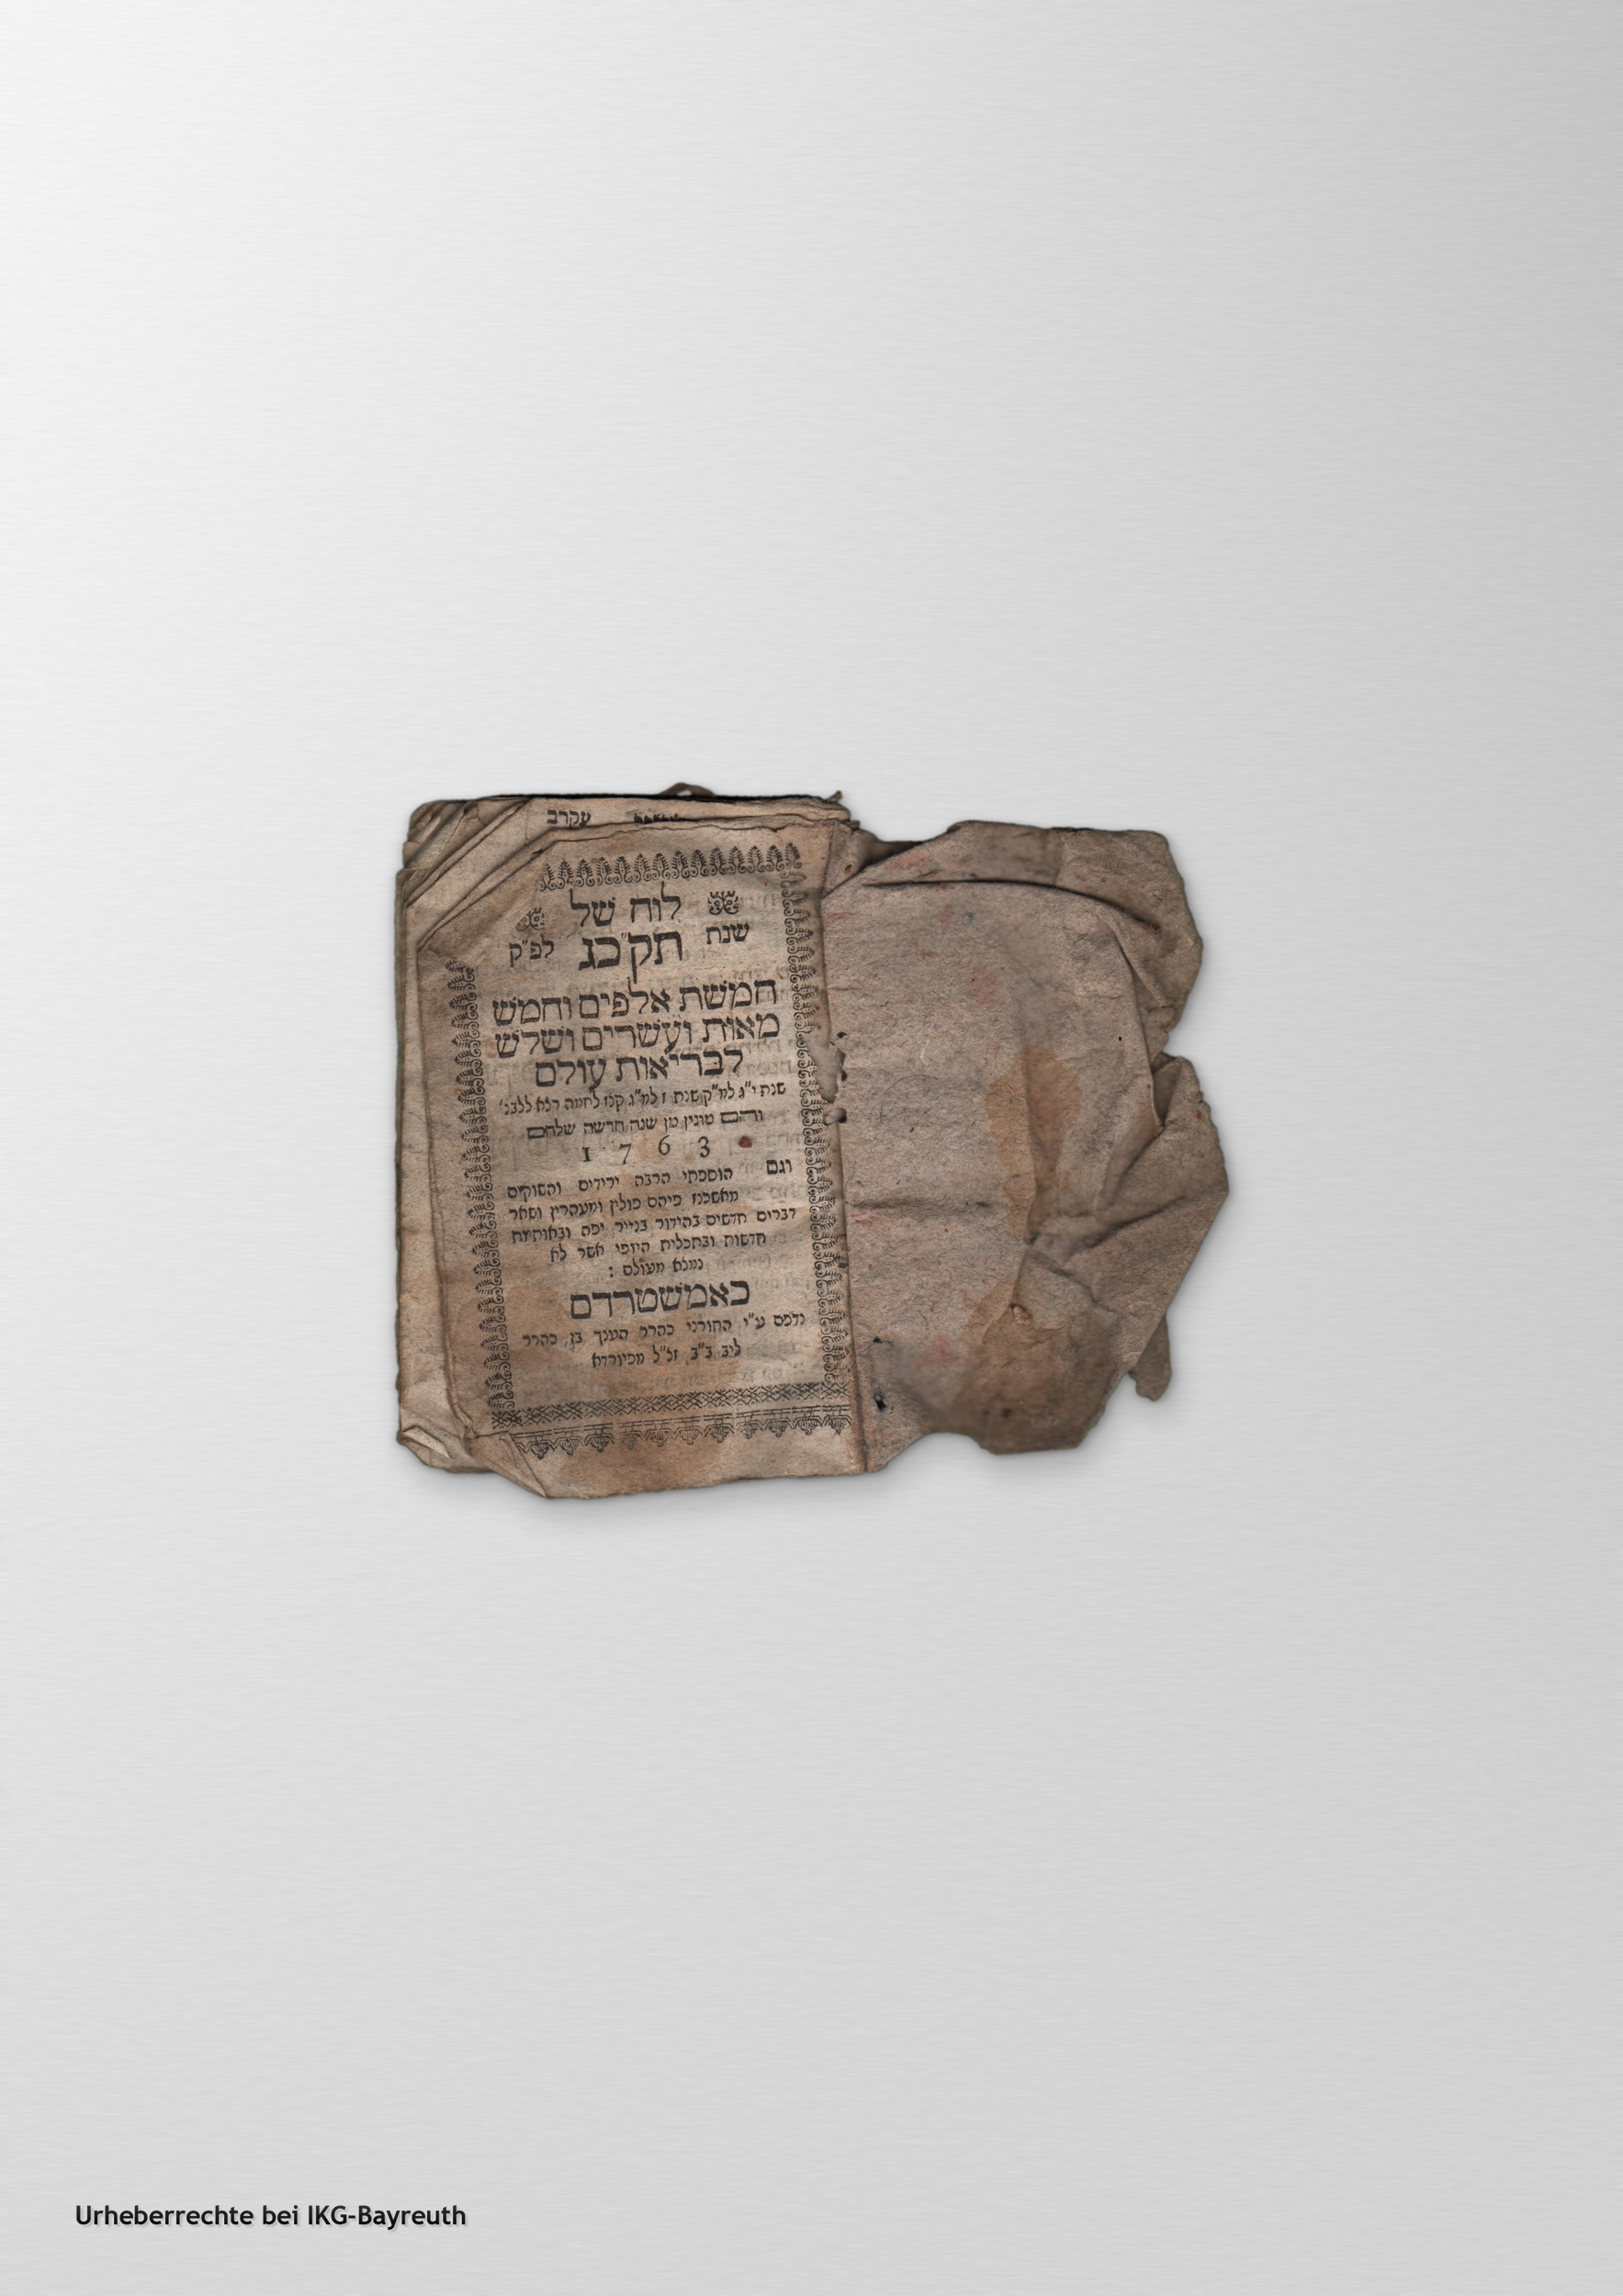 עקרב
לוח של
שנת תק"כג לפ"ק
חמשת אלפים וחמש
מאות ועשרים ושלש
לבריאות עולם
שנת י"ג למ"ק שנת ז למ"ג קנז לחמה רנא ללבנ'
והם מונין מן שנה חדשה שלהם
1 7 6 3
וגם הוספתי הרבה ירידים והשוקים
מאשכנז פיהם פולין ומעהרין ושאר
דברים חדשים בהידור בנייר יפה ובאותיות
חדשות ובתכלית היופי אשר לא
נמצא מעולם :
באמשטרדם
נדפס ע"י התורני כהרר הענך בן כהרר
ליב ב"ב זצ"ל מפיורדא
Urheberrechte bei IKG-Bayreuth